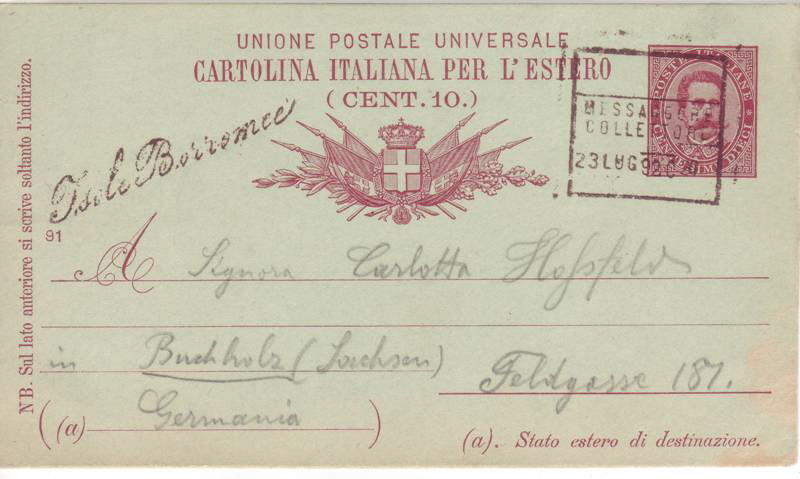 UNIONE POSTALE UNIVERSALE
CARTOLINA ITALIANA PER L'ESTERO
(CENT. 10.)
POSTE ITALIANE
CENTESIMI DIECI
MESSAGGERE
COLLETTORE
23 LUG 92
Isole Borromee
91
A Signora Carlotta Hossfeld
in Buchholz (Sachsen)
Feldgasse 187.
(a) Germania
(a). Stato estero di destinazione.
NB. Sul lato anteriore si scrive soltanto l'indirizzo.